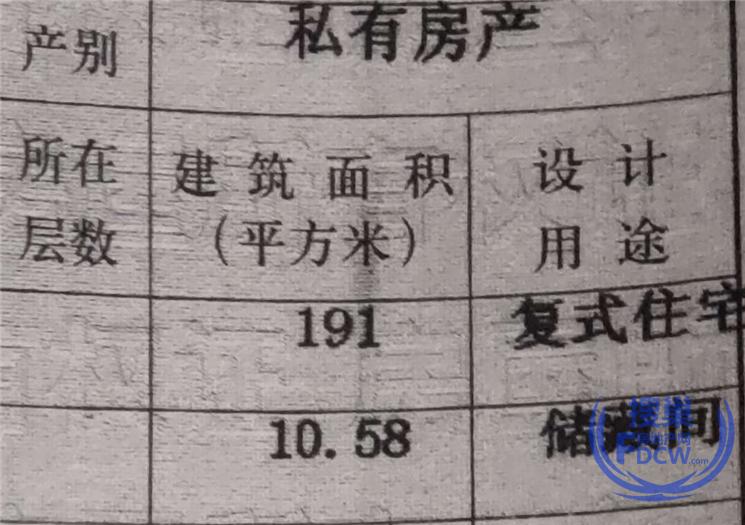 产别 私有房产
所在 建筑面积 设计
层数 (平方米) 用途
191 复式住宅
10.58 储藏间
DCW.com